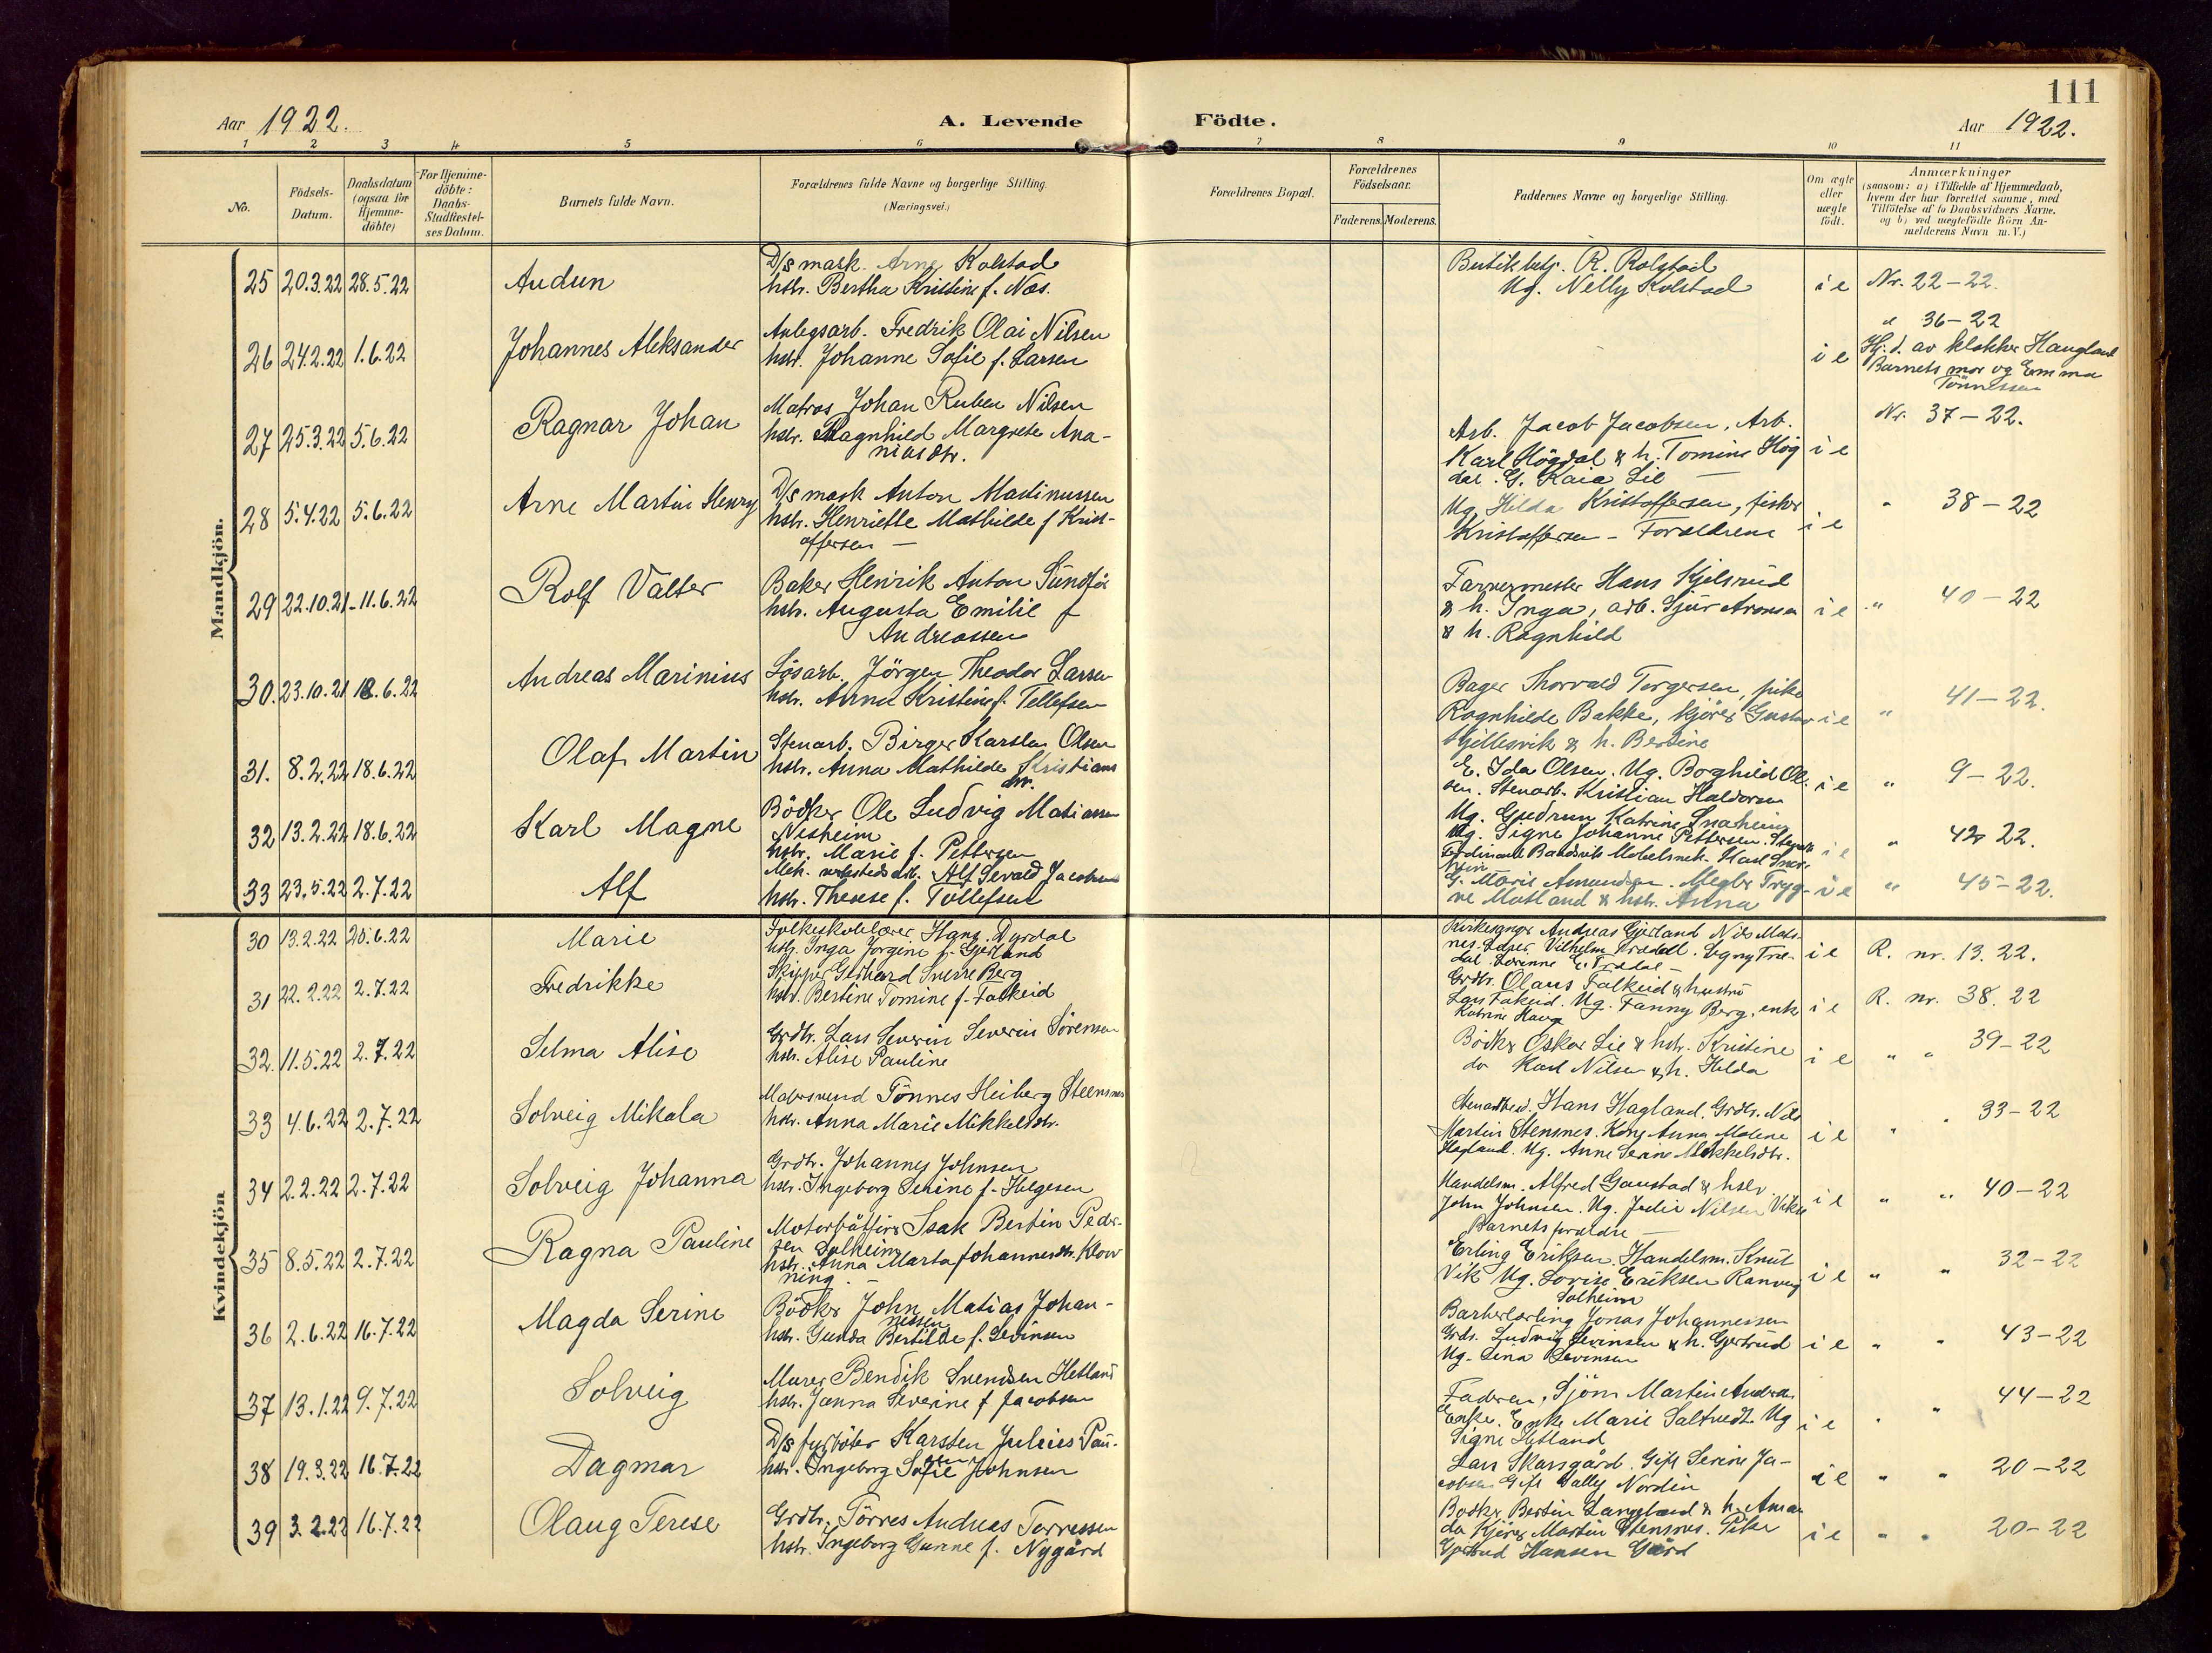 111
Aar 1922.
A. Levende Födte.
Aar 1922.
1 2 3 4 5 6 7 8 9 10 11
No.
Födsels-
Datum.
Daabsdatum
(ogsaa for
Hjemme-
döbte)
For Hjemme-
döbte:
Daabs-
Stadfæstel-
ses Datum.
Barnets fulde Navn.
Forældrenes fulde Navne og borgerlige Stilling.
(Næringsvei.)
Forældrenes Bopæl.
Forældrenes
Födselsaar.
Faderens. Moderens.
Faddernes Navne og borgerlige Stilling.
Om ægte
eller
uægte
födt.
Anmærkninger
(saasom: a) i Tilfælde af Hjemmedaab,
hvem der har forrettet samme, med
Tilföielse af to Daabsvidners Navne.
og b) ved uægtefödte Börn An-
melderens Navn m. V.)
Mandkjön.
25 20.3.22 28.5.22 Audun
D/s mask. Arne Kolstad
hstr. Bertha Kristine f. Næs.
Butikbetj. R. Rolstad
Ug. Nelly Kolstad
i e Nr. 22-22.
26 24.2.22 1.6.22 Johannes Aleksander
Anlegsarb. Fredrik Olai Nilsen
hstr. Johanne Sofie f. Larsen
i e
" 36-22
Hj. d. av klokker Haugland
Barnets mor og Emma
Tönnessen
27 25.3.22 5.6.22 Ragnar Johan
Matros Johan Ruben Nilsen
hstr. Ragnhild Margrete Ana-
niasdtr.
Arb. Jacob Jacobsen, Arb.
Karl Högdal & h. Tomine Hög
dal. G. Kaia Lie
i e Nr. 37-22.
28 5.4.22 5.6.22 Arne Martin Henry
D/s mask Anton Martinussen
hstr. Henriette Mathilde f Krist-
offersen
Ug. Hilda Kristoffersen, fisker
Kristoffersen - Forældrene
i e " 38-22
29 22.10.21 11.6.22 Rolf Valter
Baker Henrik Anton Sundför
hstr. Augusta Emilie f
Andreassen
Farvermester Hans Kjelsrud
& h. Inga, arb. Sjur Aronsen
& h. Ragnhild
i e " 40-22
30. 23.10.21 18.6.22 Andreas Marinius
Lösarb. Jörgen Theodor Larsen
hstr. Anna Kristine f. Tellefsen
Bager Thorvald Torgersen, pike
Ragnhilde Bakke, kjörer Gustav
Hillesvik & h. Bertine
i e " 41-22.
31. 8.2.22 18.6.22 Olaf Martin
Stenarb. Birger Karsten Olsen
hstr. Anna Mathilde Kristians
dtr.
E. Ida Olsen. Ug. Borghild Ol-
sen. Stenarb. Kristian Haldorsen
i e " 9-22.
32 13.2.22 18.6.22 Karl Magne
Bödker Ole Ludvig Matiassen
Nesheim
hstr. Marie f. Pettersen
Ug. Gudrun Katrine Snaheim
Ug. Signe Johanne Pettersen.
i e " 42-22.
33 23.5.22 2.7.22 Alf
Mek. verkstedsarb. Alf Sevald Jacobsen
hstr. Therese f. Tollefsen
G. Marie Amundsen. Megler Tryg-
ve Matland & hstr. Anna
i e " 45-22.
Kvindekjön
30 13.2.22 25.6.22 Marie
Folkeskolelærer Hans Dyrdal
hstr. Inga Jörgine f. Gjerland
Kirkesanger Andreas Gjerland Nils Mads-
i e R. nr. 13. 22.
31 22.2.22 2.7.22 Fredrikke
Skipper Gerhard Sverre Berg
hstr. Bertine Tomine f. Falkeid
Grdbr. Olaus Falkeid & hustru
Lars Falkeid. Ug. Fanny Berg, enke
Katrine Hauge
i e R. nr. 38. 22
32. 11.5.22 2.7.22 Selma Alise
Grdbr. Lars Severin Severin Sörensen
hstr. Alise Pauline
Bödker Oskar Lie & hstr. Kristine
do Karl Nilsen & h. Hilda
i e " " 39-22
33 4.6.22 2.7.22 Solveig Mikala
Malersvend Tönnes Heiberg Steensnes
hstr. Anna Marie Mikkelsdtr.
Stenarbeid. Hans Hagland. Grdbr. Nils
Martin Stensnes. Kone Anna Malene
Hagland. Ug. Anne Serine Mikkelsdtr.
i e " " 33-22
34 2.2.22 2.7.22 Solveig Johanna
Grdbr. Johannes Johnsen
hstr. Ingeborg Serine f. Helgesen
Handelsm. Alfred Gaustad & hstr
John Johnsen. Ug. Julie Nilsen Vikse
Barnets forældre
i e " " 40-22
35 8.5.22 2.7.22 Ragna Pauline
Motorbåtförer Isak Bertin Peder-
sen Solheim
hstr. Anna Marta Johannesdtr. Klov
ning.
Erling Eriksen. Handelsm. Knut
Vik Ug. Lovise Eriksen Ranveig
Solheim
i e " " 32-22
36 2.6.22 16.7.22 Magda Serine
Bödker John Matias Johan-
nessen
hstr. Gunda Bertilde f. Levinsen
Barberlærling Jonas Johannessen
Grdr. Ludvig Levinsen & h. Gjertrud
Ug. Lina Levinsen
i e " " 43-22
37 13.1.22 9.7.22 Solveig
Murer Bendik Svendsen Hetland
hstr. Janna Severine f Jacobsen
Faderen, Sjöm Martin Andreas
Enke Marie Saltvedt. Ug
Signe Hetland
i e " " 44-22
38 19.3.22 16.7.22 Dagmar
D/s fyrböter Karsten Julius Pau-
sen
hstr. Ingeborg Sofie Johnsen
Lars Skarsgård. Gift Serine Ja-
cobsen Gift Vally Nordin
i e " " 20-22
39 3.2.22 16.7.22 Olaug Terese
Grdbr. Törres Andreas Torressen
hstr. Ingeborg Gurine f. Nygård
Bödker Bertin Langeland & h. Aman
da Kjörer Martin Stensnes. Pike
Gjertrud Hansen Gård
i e " " 20-22